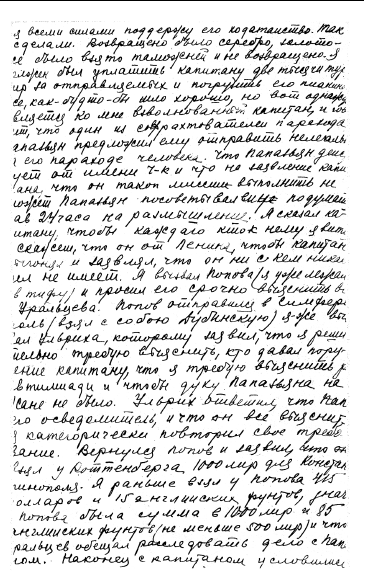 я всеми силами поддержу его ходатайство. Так
сделали. Возвращено было серебро, золото-
се было взято таможней и не возвращено. Я
лжен был уплатить капитану две тысячи ту
ир за отправляемых и погрузить его пианино
се, как-будто-бы шло хорошо, но вот однажды
вляется ко мне взволнованный капитан, и
ет, что один из софрахтователей парохода
апазьян предложил ему отправить нелегаль
а его пароходе человека. Что Папазьян дейс
ует от имени ч-к и что на заявление капи
ана, что он такой миссии выполнить не
ожет Папазьян посоветывал еще подумат
ав 24 часа на размышление. Я сказал ка-
итану, чтобы каждаго кто к нему явит
скажет, что он от Ленина, чтобы капитан
выгонял и заявлял, что он ни с кем никак
ел не имеет. Я вызвал Попова/я уже лежал
в тифу/ и просил его срочно выяснить в
Уральцева. Попов отправился в Симфер
оль/взял с собою Дубинскую/ я-же вы
ал Ульриха, которому заявил, что я реши
ельно требую выяснить, кто давал пору-
ение капитану, что я требую выяснить р
и чтобы духу Папазьяна на
сане не было. Ульрих ответил, что Пап
его осведомитель, и что он все выяснит
я категорически повторил свое требо
вание. Вернулся Попов и заявил, что он
взял у Роттенберга, 1000 лир для Констан
инополя. Я раньше взял у Попова 425
олларов и 15 английских фунтов, знач
Попова была сумма в 1000 лир и 85
нглийских фунтов/не меньше 500 лир/ и что
ральцев обещал расследовать дело с Пап
ном. Наконец с капитаном условились